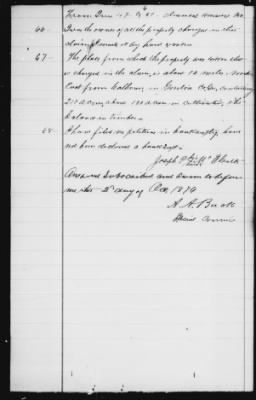 From Ques 43 to 65. Claimant answers No.
66 I was the owner of all the property charged in this
claim found at my hand
67 The place from which the property was taken and
is charged in the claim, is about 10 miles
East from Calhoun in Gordon Co Ga, containing
210 acres, about 100 acres in cultivation, the
balance in timber.
68 I have filed no petition in bankruptcy have
not been declared a bankrupt.
Joseph
his
mark
Answered Subscribed and sworn to before
me this 2 day of Oct, 1874
A. A. Buck
Special Commr